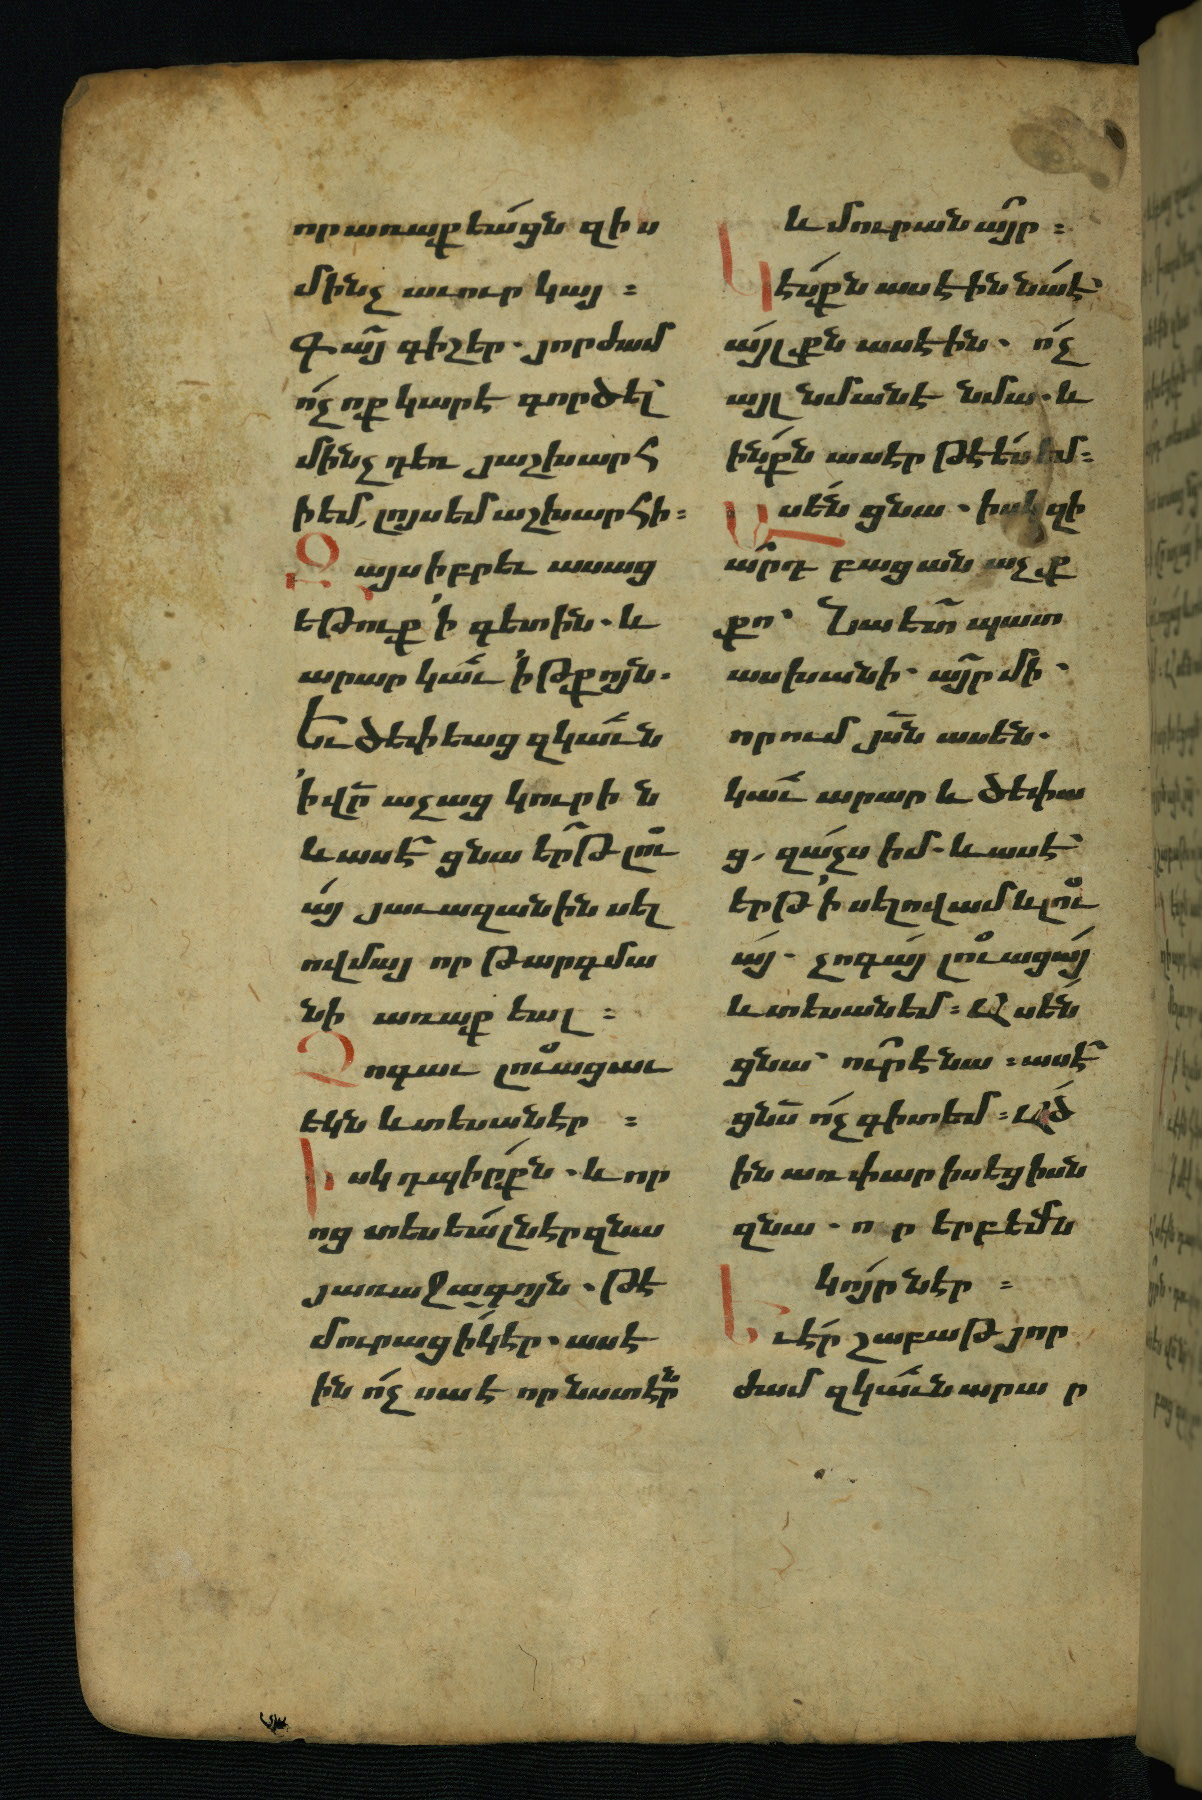 որառաքեացն զիս
մինչ աւուր կայ ։
Գայ գիշեր. յորժամ
ոչ ոք կարէ գործել՝
մինչ դեռ յաշխարհ
իեմ, լոյսեմ աշխարհի։
Զայս իբրեւ ասաց
եթուք՚ի գետին. և
արար կաւ՚ի թքոյն.
Եւ ծեփեաց զկաւն
՚ի վր աչաց կուրին
և ասէ ցնա երթ լու
ա յաւազանին սել
ովմայ որ թարգմա
նի առաքեալ ։
Չոգաւ լուացաւ
եկն և տեսանէր ։
Իսկ դպիրքն. և որ
ոց տեսեալնէր զնա
յառաջագոյն. թէ
մուրացիկէր. ասէ
ին ոչ սա է որ նստէրն
և մուրանայր ։
Կէսքն ասէին նաէ՝
այլքն ասէին. ոչ
այլ նմանէ նմա. և
ինքն ասէր թէ ես եմ։
Ասեն ցնա. իսկ զի
արդ բացան աչք
քո՝ Նա ետ պատ
ասխանի՝ այր մի՝
որում յս ասեն.
կաւ արար և ծեփեա
ց, զաչս իմ. և ասէ՝
երթ՚ի սելովամ և լու
ա. չոգայ լուացայ
և տեսանեմ։ Ասեն
ցնա՝ ուր է նա ։ ասէ
ցնս ոչ գիտեմ։ Ած
ին առ փարիսեցիսն
զնա. ո ր երբեմն
կոյր նէր ։
Եւ էր շաբաթ յոր
ժամ զկաւն արա ր